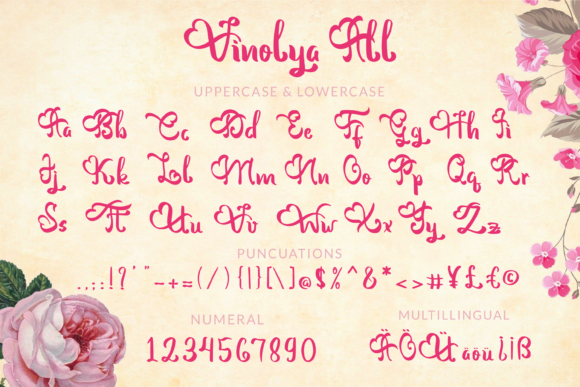 Vinolya All
UPPERCASE & LOWERCASE
Aa Bb Cc Dd Ee Ff Gg Hh Ii
Jj Kk Ll Mm Nn Oo Pp Qq Rr
Ss Tt Uu Vv Ww Xx Yy Zz
PUNCUATIONS
.,:;!?'"-+=(/){|}[\]@$%^&*<>#¥££€©
NUMERAL
1234567890
MULTILLINGUAL
ÄÖÜäöü¡iß